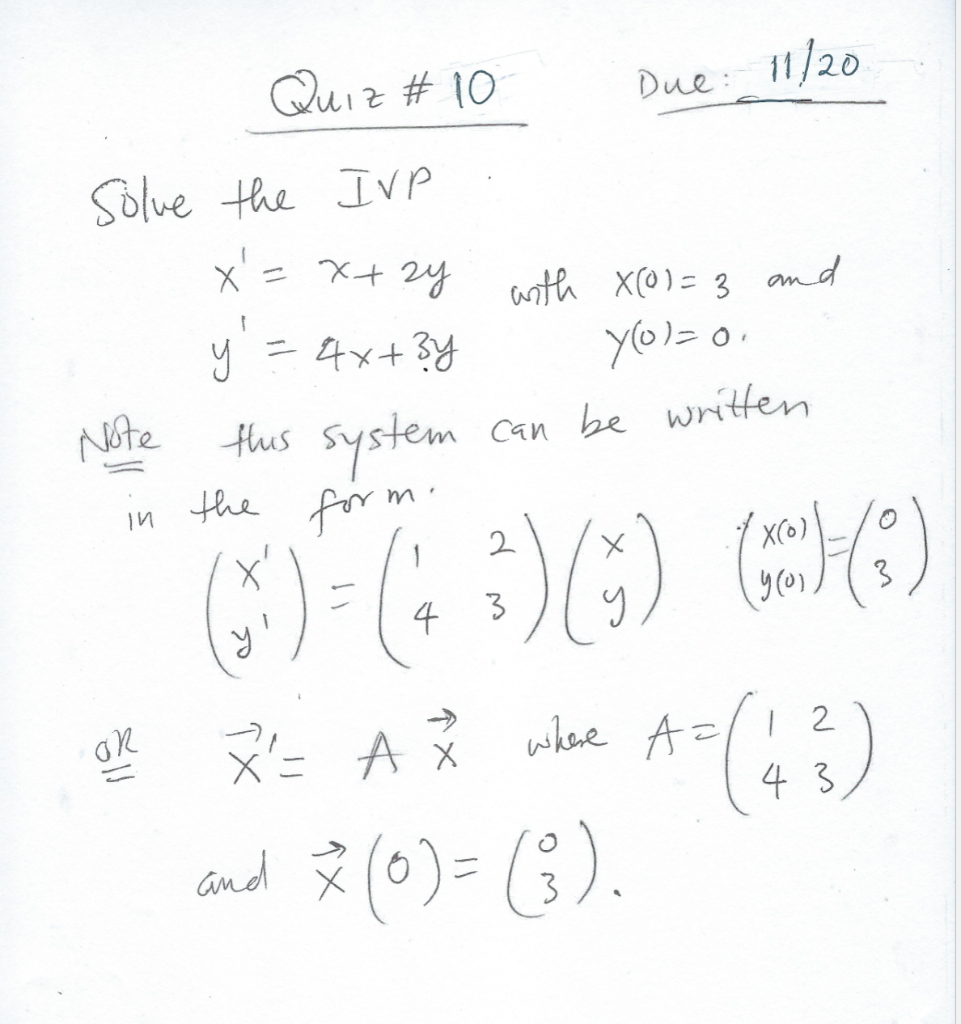 Quiz # 10 Due: 11/20
Solve the IVP
x' = x + 2y with x(0) = 3 and
y' = 4x + 3y y(0) = 0.
Note this system can be written
in the form.
(x' y') = (1 2 4 3) (x y) (x(0) y(0)) = (0 3)
OR x⃗' = A x⃗ where A = (1 2 4 3)
and x⃗(0) = (0 3).